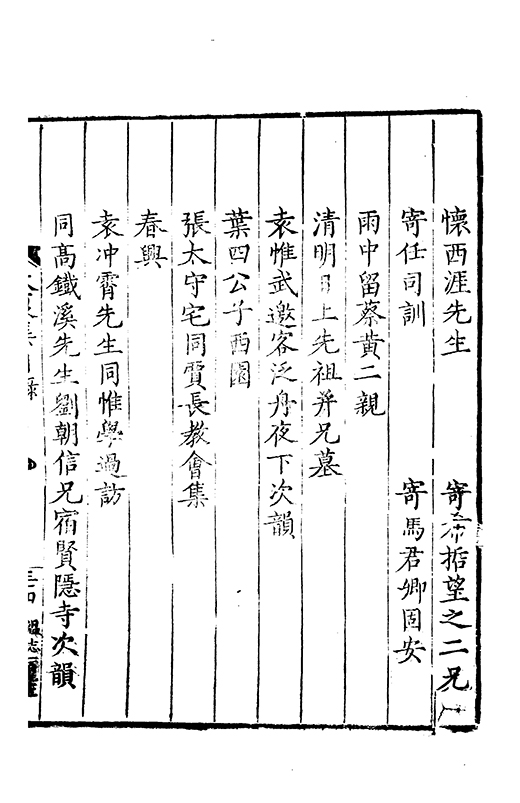 懷西涯先生　寄希哲望之二兄
寄任司訓　寄馬君卿固安
雨中留蔡黃二親
清明日上先祖并兄墓
袁惟武邀客泛舟夜下次韻
葉四公子西園
張太守宅同賈長教會集
春興
袁冲霄先生同惟學過訪
同高鐵溪先生劉朝信兄宿賢隱寺次韻